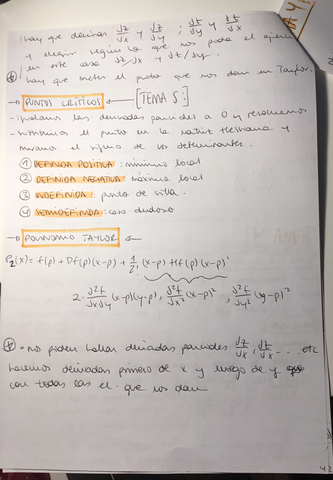 hay que derivar ∂z/∂x y ∂z/∂y ; ∂t/∂y y ∂t/∂x
y elegir según lo que nos pida el
en este caso ∂z/∂x y ∂t/∂y.
hay que meter el punto que nos dan en Taylor.
→ PUNTOS CRÍTICOS ← [TEMA 5:]
- igualamos las derivadas parciales a 0 y resolvemos
- sustituimos el punto en la matriz Hessiana y
miramos el signo de los determinantes.
① DEFINIDA POSITIVA: mínimo local
② DEFINIDA NEGATIVA: máximo local
③ INDEFINIDA: punto de silla.
④ SEMIDEFINIDA: caso dudoso
→ POLINOMIO TAYLOR ←
P₂(x) = f(p) + Df(p)(x-p) + 1/2! (x-p) Hf(p)(x-p)ᵗ
2· ∂²f/∂x∂y (x-p)(y-p), ∂²f/∂x² (x-p)², ∂²f/∂y² (y-p)²
• no piden hallar derivadas parciales ∂z/∂x, ∂t/∂x ... etc
hacemos derivadas primero de x y luego de y
con todas las el. que nos dan